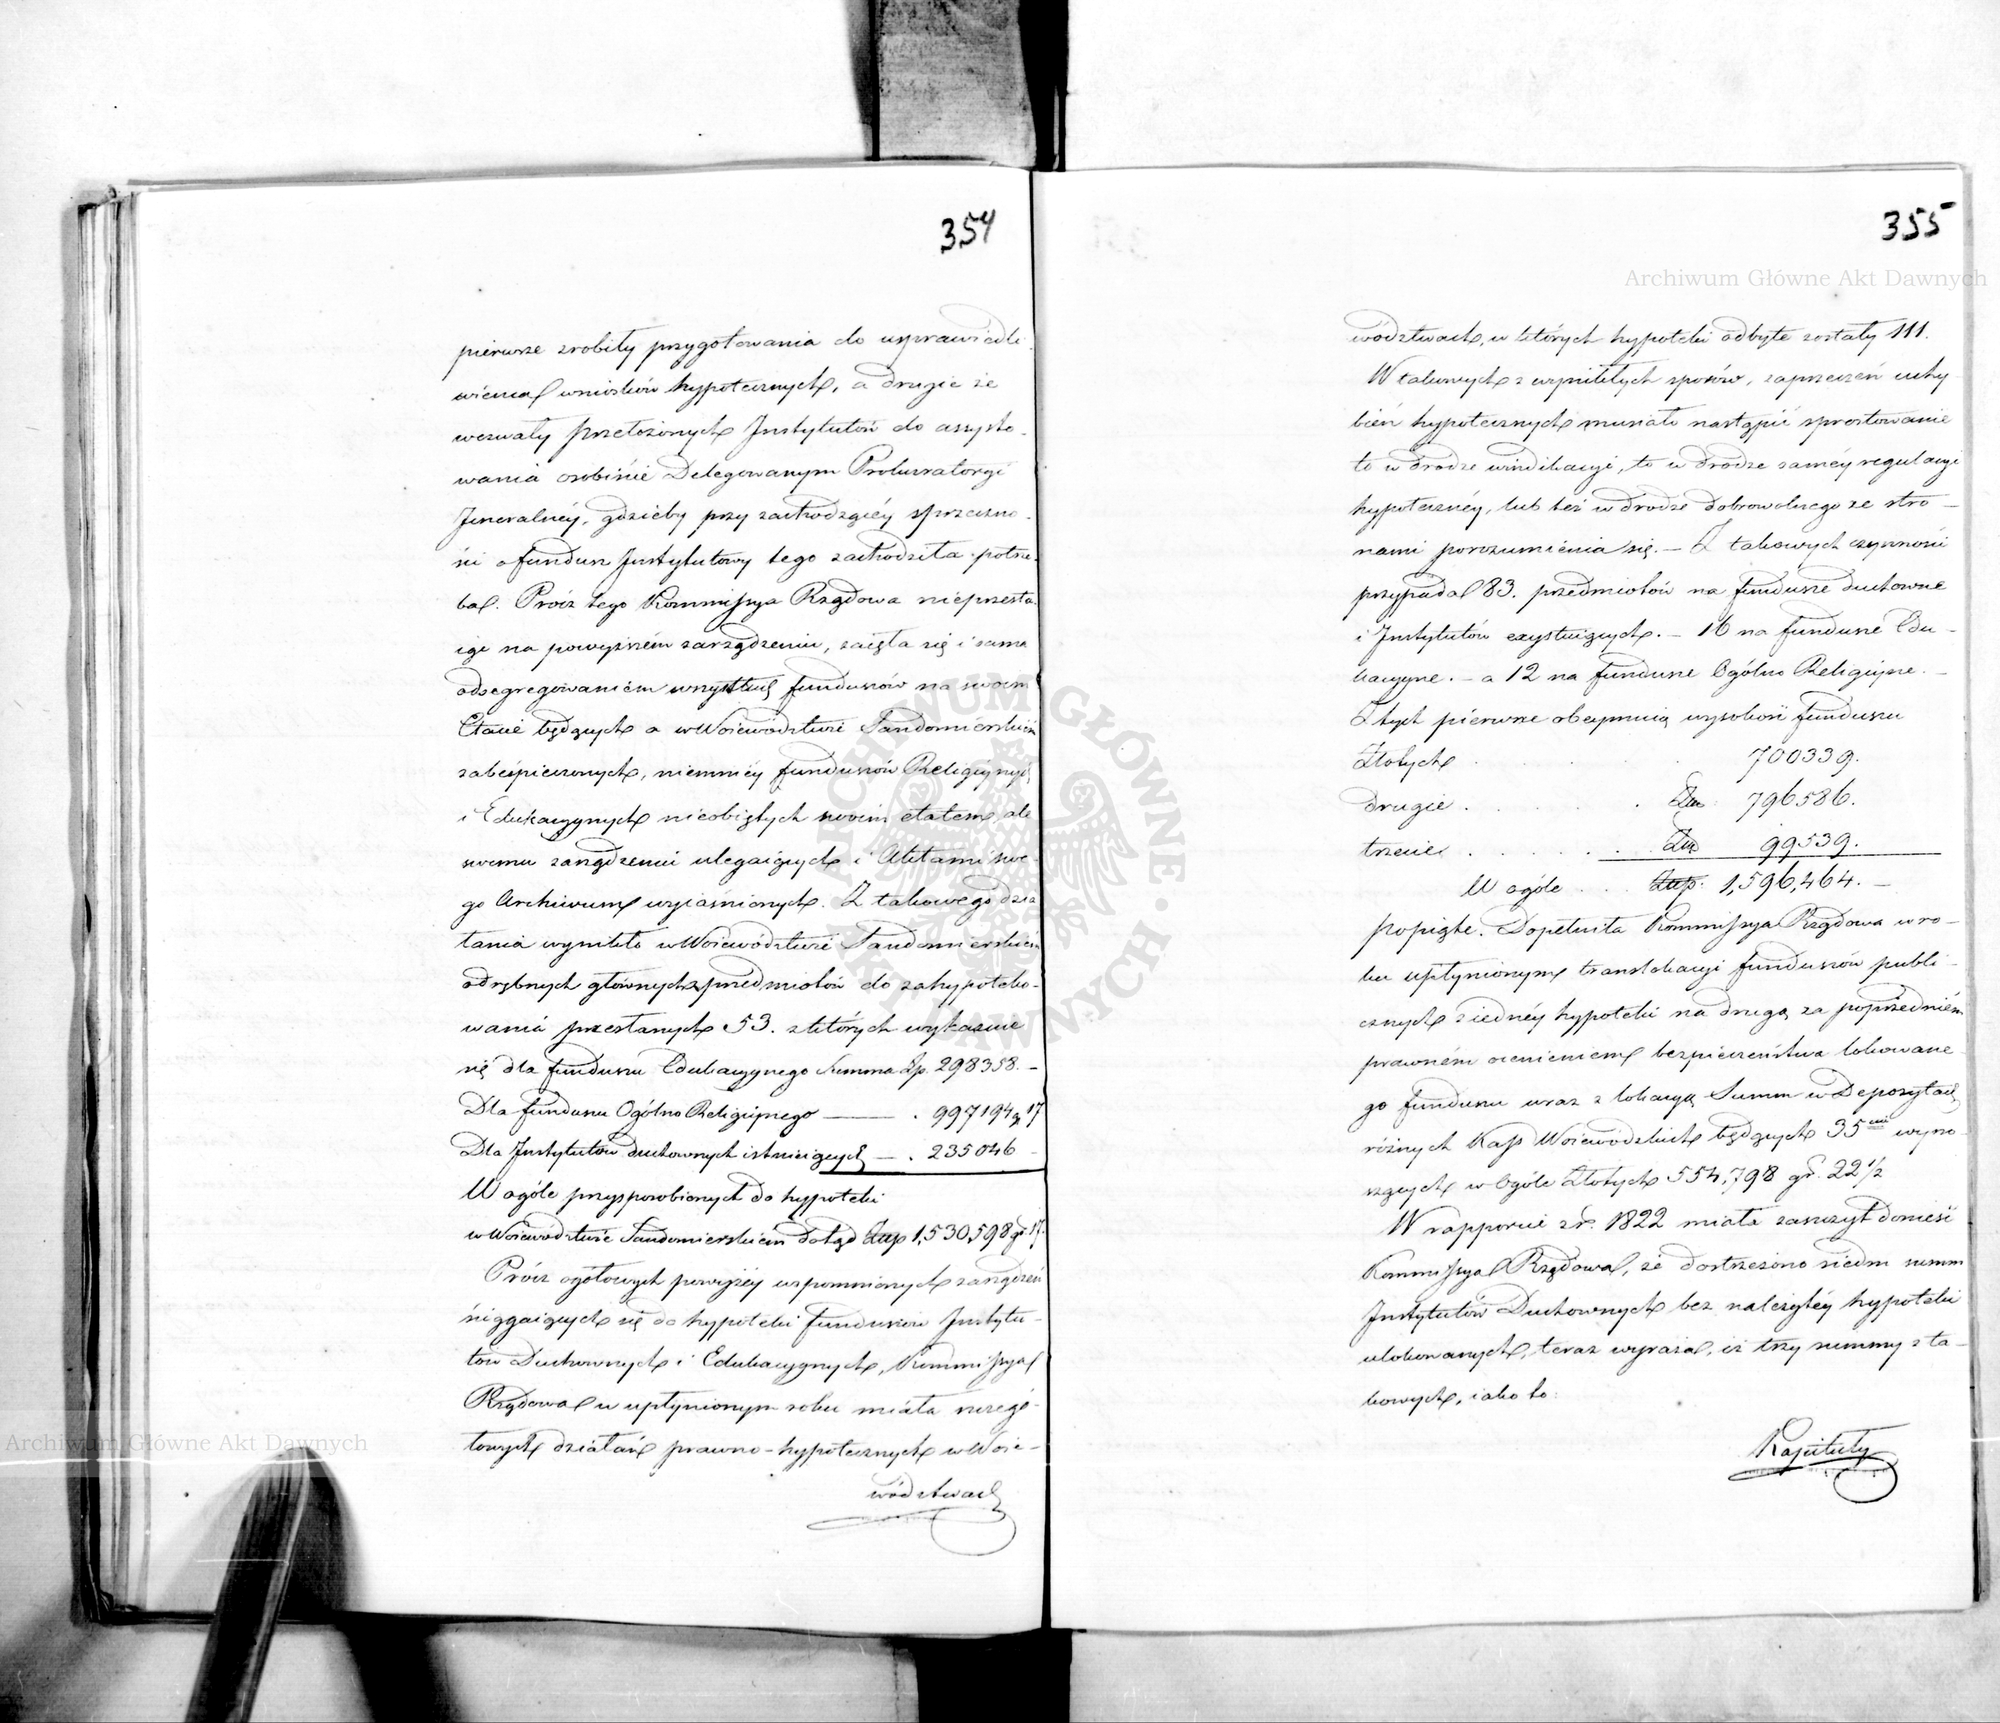 354
pierwsze zrobiły przygotowania do usprawiedli-
wienia wniosków hypotecznych, a drugie że
wezwały przełożonych Instytutów do assysto-
wania osobiście Delegowanym Prokuratoryi
Jeneralnéy, gdzieby przy zachodzącéy sprzeczno-
ści o fundusz Instytutowy tego zachodziła potrze-
ba. Prócz tego Kommissya Rządowa nieprzesta-
iąc na powyższém zarządzeniu, zaięła się i sama
odsegregowaniem wszystkich funduszów na swoim
Etacie będących a w Woiewództwie Sandomierskiém
zabezpieczonych, niemniéy funduszów Religiynych
i Edukacyynych nieobiętych swoim etatem, ale
swemu zarządzeniu ulegaiących i Aktami swe-
go Archiwum wyiaśnionych. Z takowego dzia-
łania wynikło w Woiewództwie Sandomierskiém
odrębnych głównych przedmiotów do zahypoteko-
wania przesłanych 53. z których wykazuie
się dla funduszu Edukacyynego Summa Zp. 298358. –
Dla funduszu Ogólno Religiynego —— . 997194 g 17
Dla Instytutów duchownych istnieiących — . 235046 –
W ogóle przysposobionych do hypoteki
w Woiewództwie Sandomierskiém dotąd Złp 1,530,598 gr 17.
Prócz ogółowych powyżéy wspomnionych zarządzeń
ściągaiących się do hypoteki funduszów Instytu-
tów Duchownych i Edukacyynych, Kommissya
Rządowa w upłynionym roku miała szczegó-
łowych działań prawno-hypotecznych w Woie-
wództwach
355
wództwach, w których hypoteki odbyte zostały 111.
W takowych z wynikłych sporów, zaprzeczeń uchy-
bień hypotecznych musiało nastąpić sprostowanie
to w drodze windikacyi, to w drodze saméy regulacyi
hypotecznéy, lub też w drodze dobrowolnego ze stro-
nami porozumienia się. – Z takowych czynności
przypada 83. przedmiotów na fundusze duchowne
i Instytutów exystuiących. – 16 na fundusze Edu-
kacyyne. – a 12 na fundusze Ogólno Religiyne. –
Z tych pierwsze obeymuią wysokość funduszu
Złotych . . . 700339.
drugie . . . . Złp. 796586.
trzecie . . . . Złp 99539.
W ogóle . . . Złp. 1,596,464. –
popiąte. Dopełniła Kommissya Rządowa w ro-
ku upłynionym translokacyi funduszów publi-
cznych z iednéy hypoteki na drugą za poprzedniém
prawném ocenieniem bezpieczeństwa lokowane-
go funduszu wraz z lokacyą Summ w Depozytach
różnych Kass Woiewódzkich będących 35ciu wyno-
szących w Ogóle Złotych 554,798 gr. 22 1/2
W rapporcie z r. 1822 miała zaszczyt donieść
Kommissya Rządowa, że dostrzeżono siedm summ
Instytutów Duchownych bez należytéy hypoteki
ulokowanych, teraz wyraża, iż trzy summy z ta-
kowych, iako to:
Kapituły
Archiwum Główne Akt Dawnych
Archiwum Główne Akt Dawnych
ARCHIWUM GŁÓWNE AKT DAWNYCH